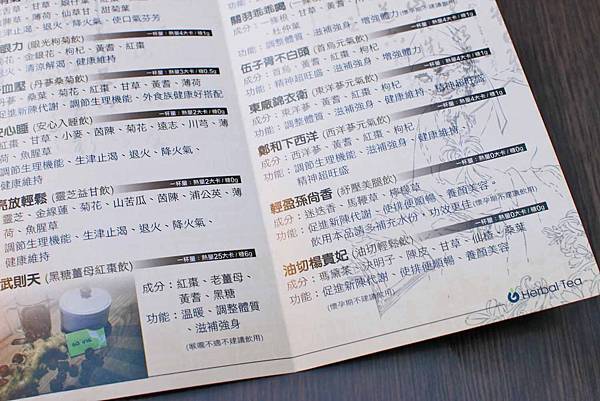 舌草、甘草、
涼草、荷、仙草甘、甜菊葉
生津止渴、退火、降火、使口氣芬芳
一杯量：熱量4大卡/糖1g
眼力 (眼光枸菊飲)
菊花、金銀花、枸杞、黃耆、紅棗
退火、清涼解渴、健康維持
一杯量：熱量3大卡/糖0.5g
血壓 (丹蔘桑菊飲)
丹蔘、桑葉、菊花、紅棗、甘草、黃耆、薄荷
促進新陳代謝、調節生理機能、外食族健康好搭配
一杯量：熱量2大卡/糖0g
安心睡 (安心入睡飲)
甘草、小麥、茵陳、菊花、遠志、川芎、薄
荷、魚腥草
調節生理機能、生津止渴、退火、降火氣、
健康維持
一杯量：熱量2大卡/糖0g
亮放輕鬆 (靈芝益甘飲)
靈芝、金線蓮、菊花、山苦瓜、茵陳、蒲公英、薄
荷、魚腥草
調節生理機能、生津止渴、退火、降火氣、
健康維持
一杯量：熱量25大卡/糖6g
武則天 (黑糖薑母紅棗飲)
成分：紅棗、老薑母、
黃耆、黑糖
功能：溫暖、調整體質
、滋補強身
(喉嚨不適不建議飲用)
關羽乖乖喝
成分：一條根、甘草、黃耆、紅棗、枸杞
、杜仲葉
功能：調整體質、滋補強身、增強體力
(懷孕期不建議飲用)
一杯量：熱量4大卡/糖1g
伍子胥不白頭 (首烏元氣飲)
成分：首烏、黃耆、紅棗、枸杞
功能：精神超旺盛、滋補強身、增強體力
一杯量：熱量4大卡/糖1g
東廠錦衣衛 (東洋蔘元氣飲)
成分：東洋蔘、黃耆、紅棗、枸杞
功能：調整體質、滋補強身、健康維持、精神超旺盛
一杯量：熱量4大卡/糖1g
鄭和下西洋 (西洋蔘元氣飲)
成分：西洋蔘、黃耆、紅棗、枸杞
功能：調節生理機能、滋補強身、健康維持、
精神超旺盛
一杯量：熱量0大卡/糖0g
輕盈孫尚香 (紓壓美腿飲)
成分：迷迭香、馬鞭草、檸檬草
功能：促進新陳代謝、使排便順暢、養顏美容。
飲用本品請多補充水份，功效更佳 (懷孕期不建議飲用)
一杯量：熱量0大卡/糖0g
油切楊貴妃 (油切輕鬆飲)
成分：瑪黛茶、決明子、陳皮、甘草、仙楂、桑葉
功能：促進新陳代謝、使排便順暢、養顏美容
(懷孕期不建議飲用)
Herbal Tea